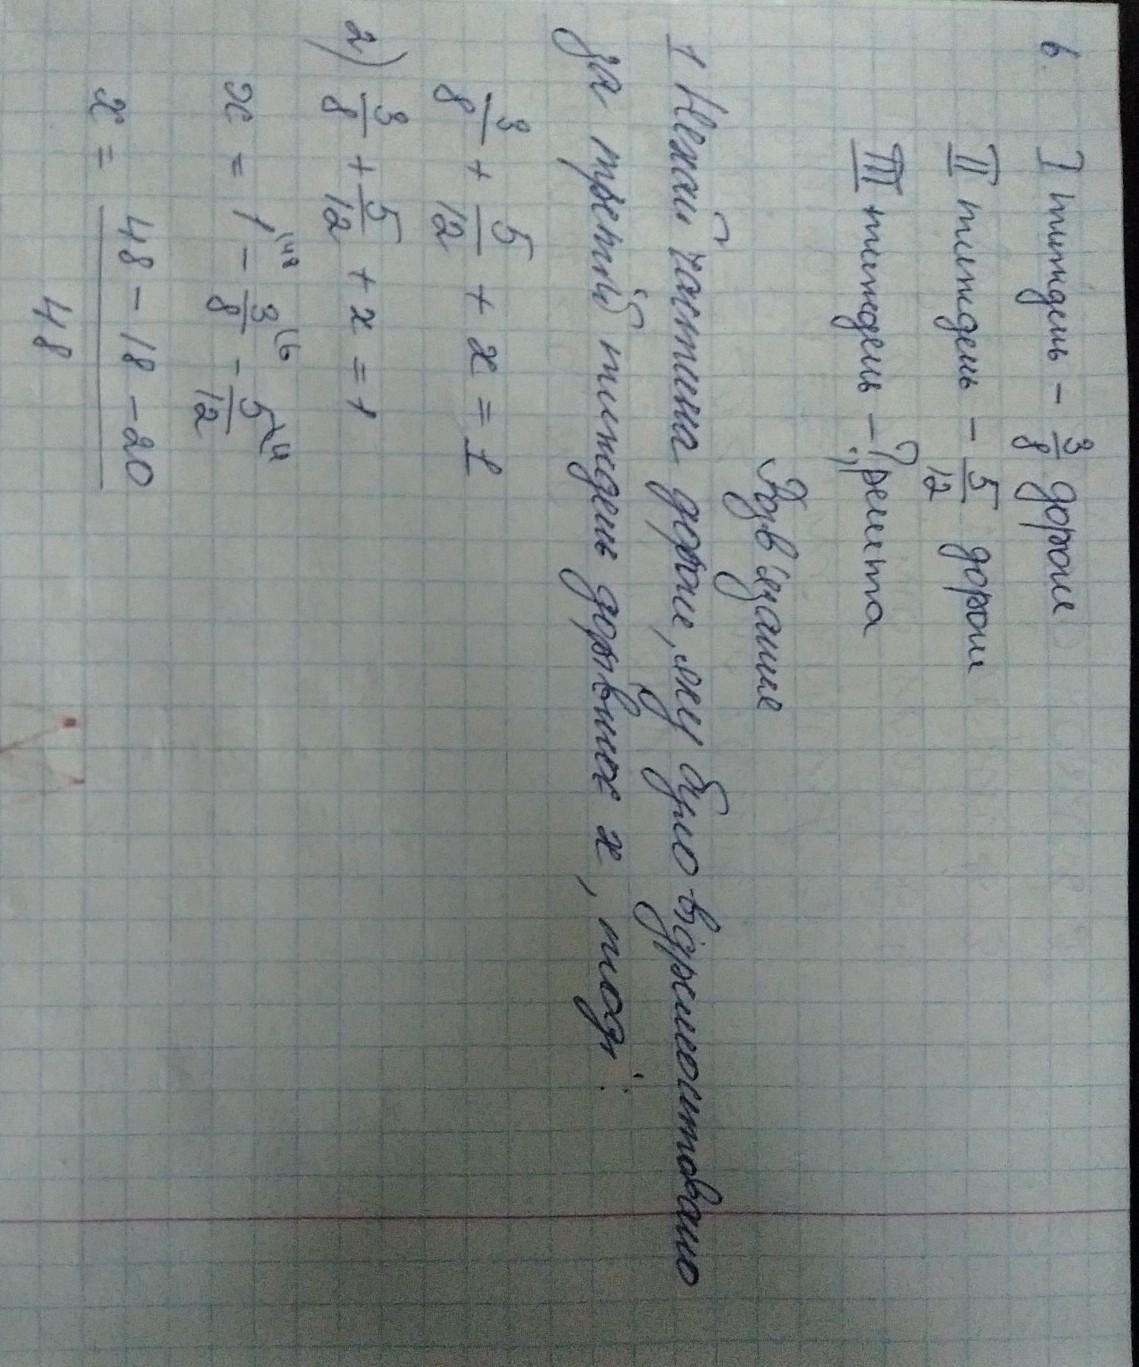 6. I тиждень - 3/8 дороги
II тиждень - 5/12 дороги
III тиждень - ?, решта
Розв'язання
1 Нехай частина дороги, яку було відремонтовано
за третій тиждень дорівнює x, тоді:
3/8 + 5/12 + x = 1
2) 3/8 + 5/12 + x = 1
x = 1\48 - 3/8\6 - 5/12\4
x = 48 - 18 - 20
48